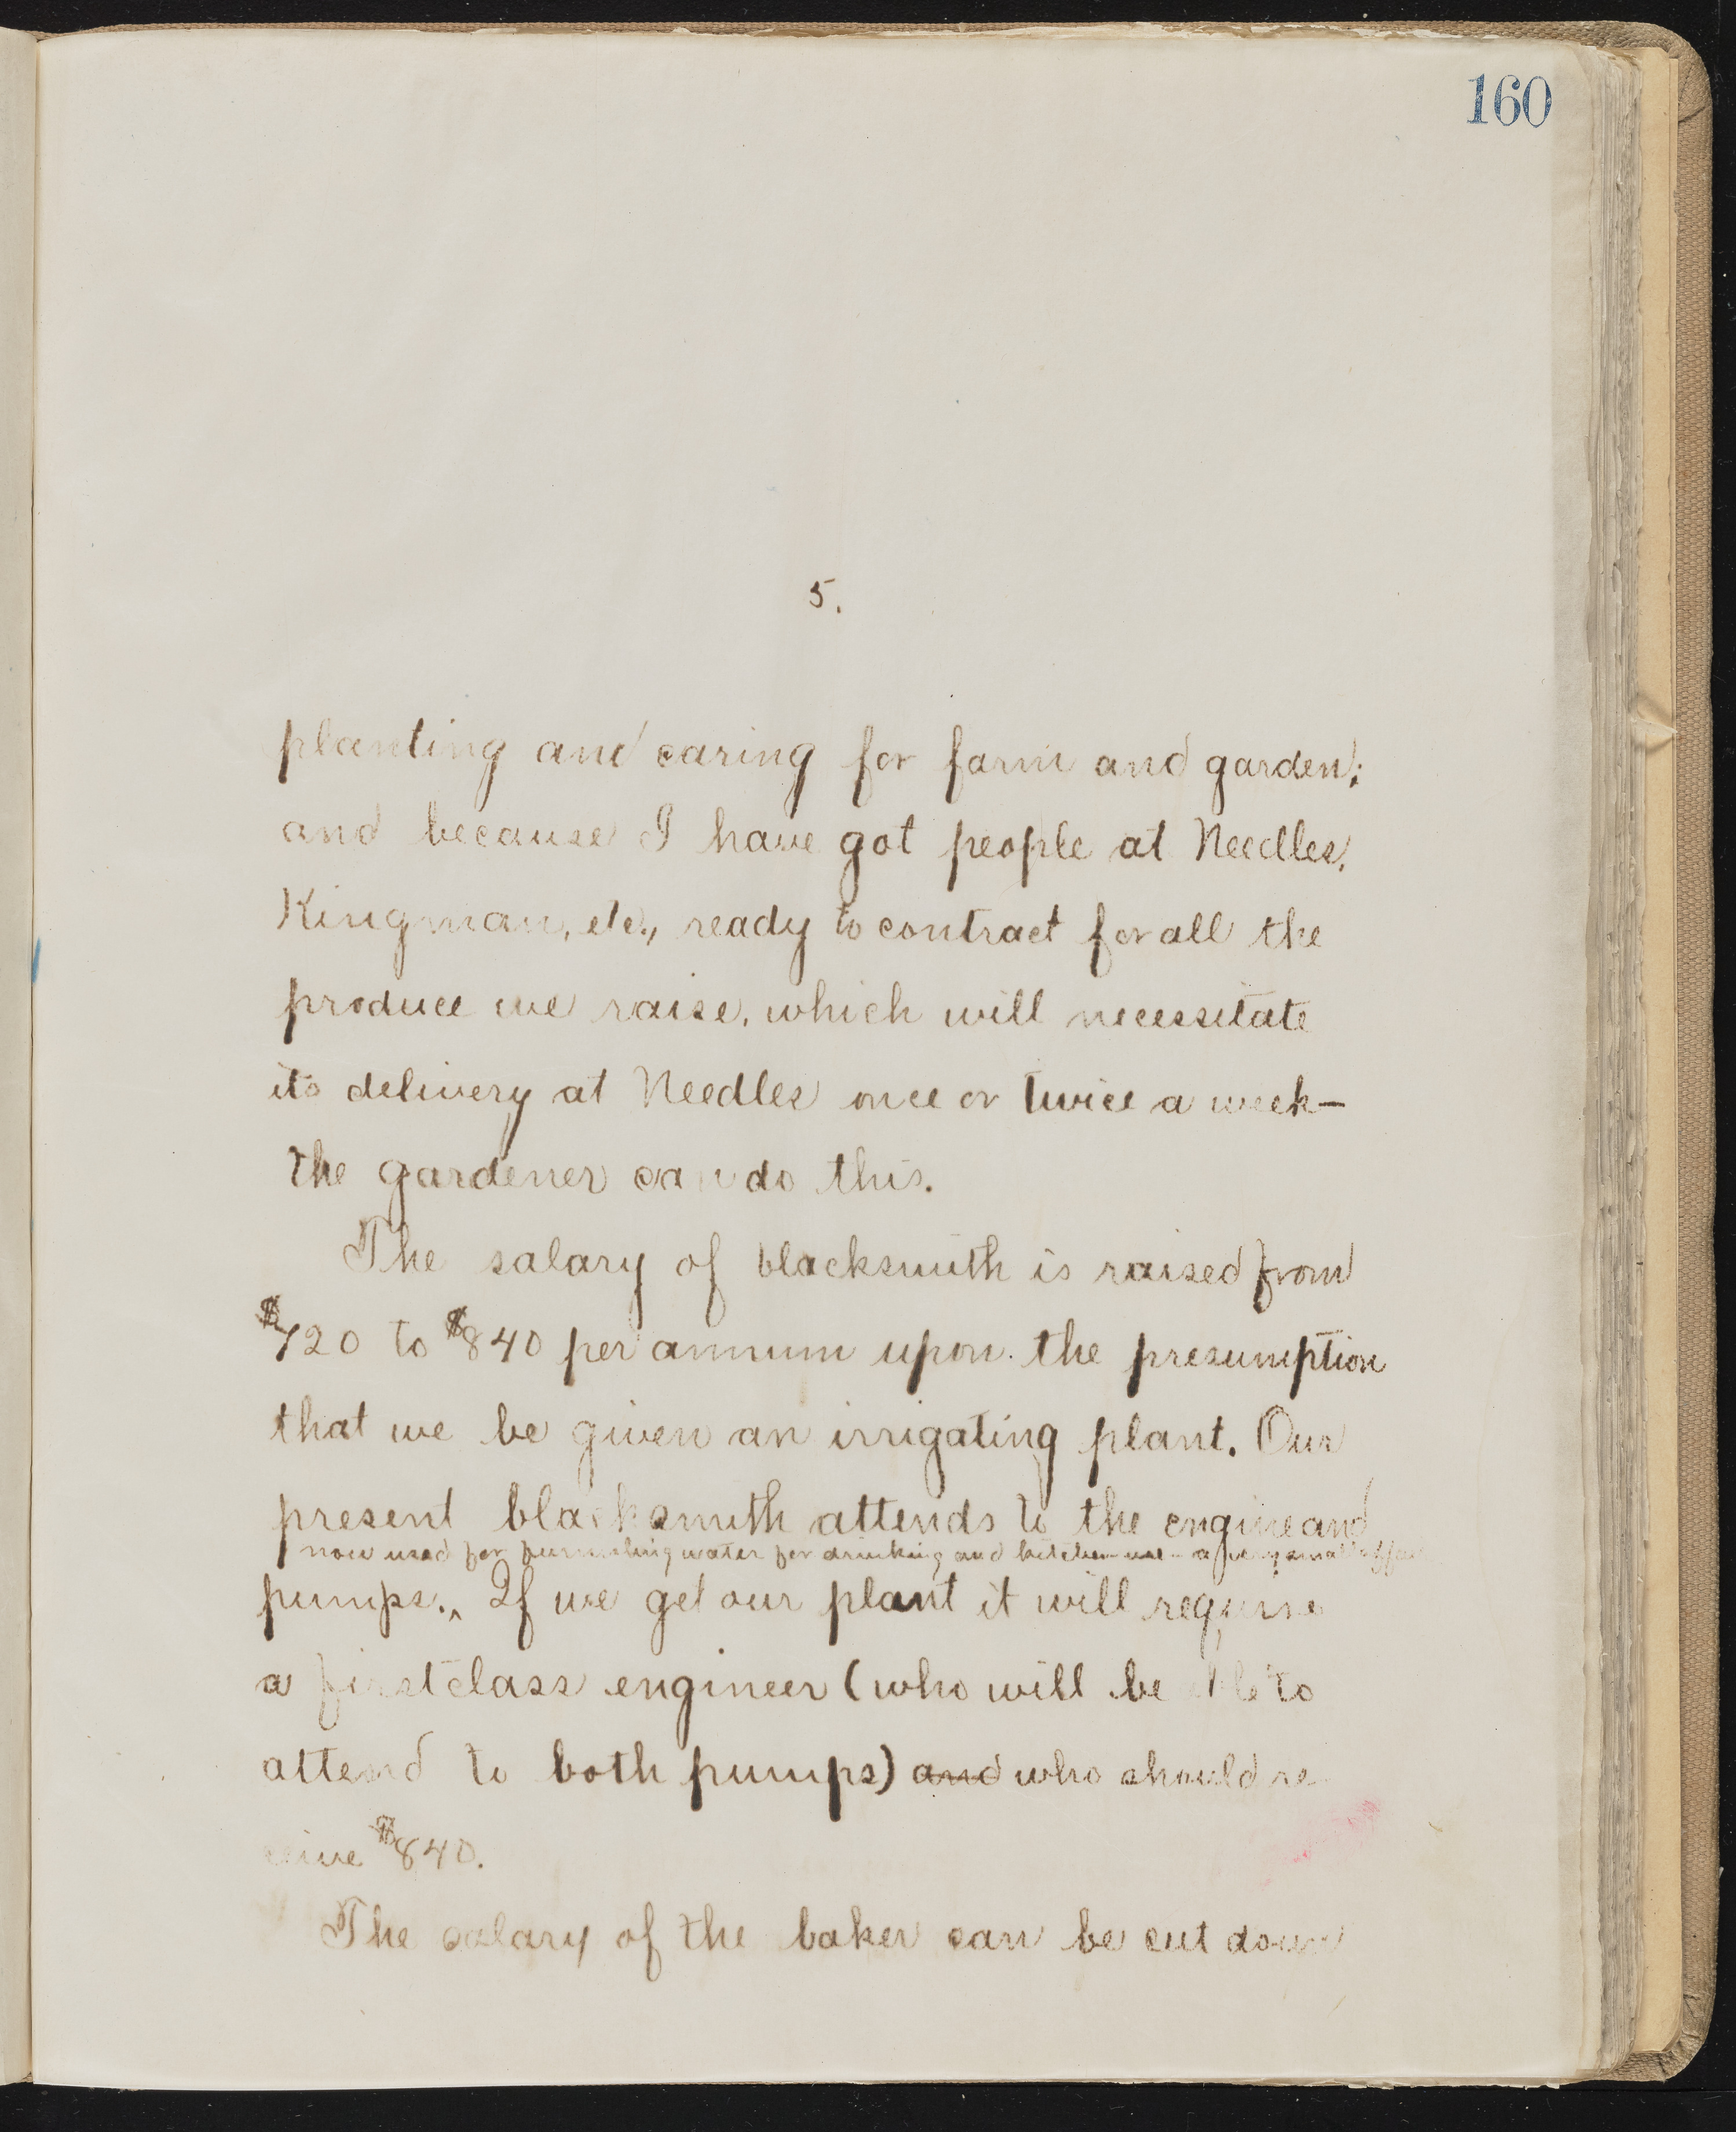 160
5.
planting and caring for farm and garden;
and because I have got people at Needles,
Kingman, etc., ready to contract for all the
produce we raise, which will necessitate
its delivery at Needles once or twice a week—
the gardener can do this.
The salary of blacksmith is raised from
$720 to $840 per annum upon the presumption
that we be given an irrigating plant. Our
present blacksmith attends to the engine and
now used for furnishing water for drinking and kitchen use - a very small affair
pumps.^ If we get our plant it will require
a first class engineer (who will be able to
attend to both pumps) and who should re
ceive $840.
The salary of the baker can be cut down